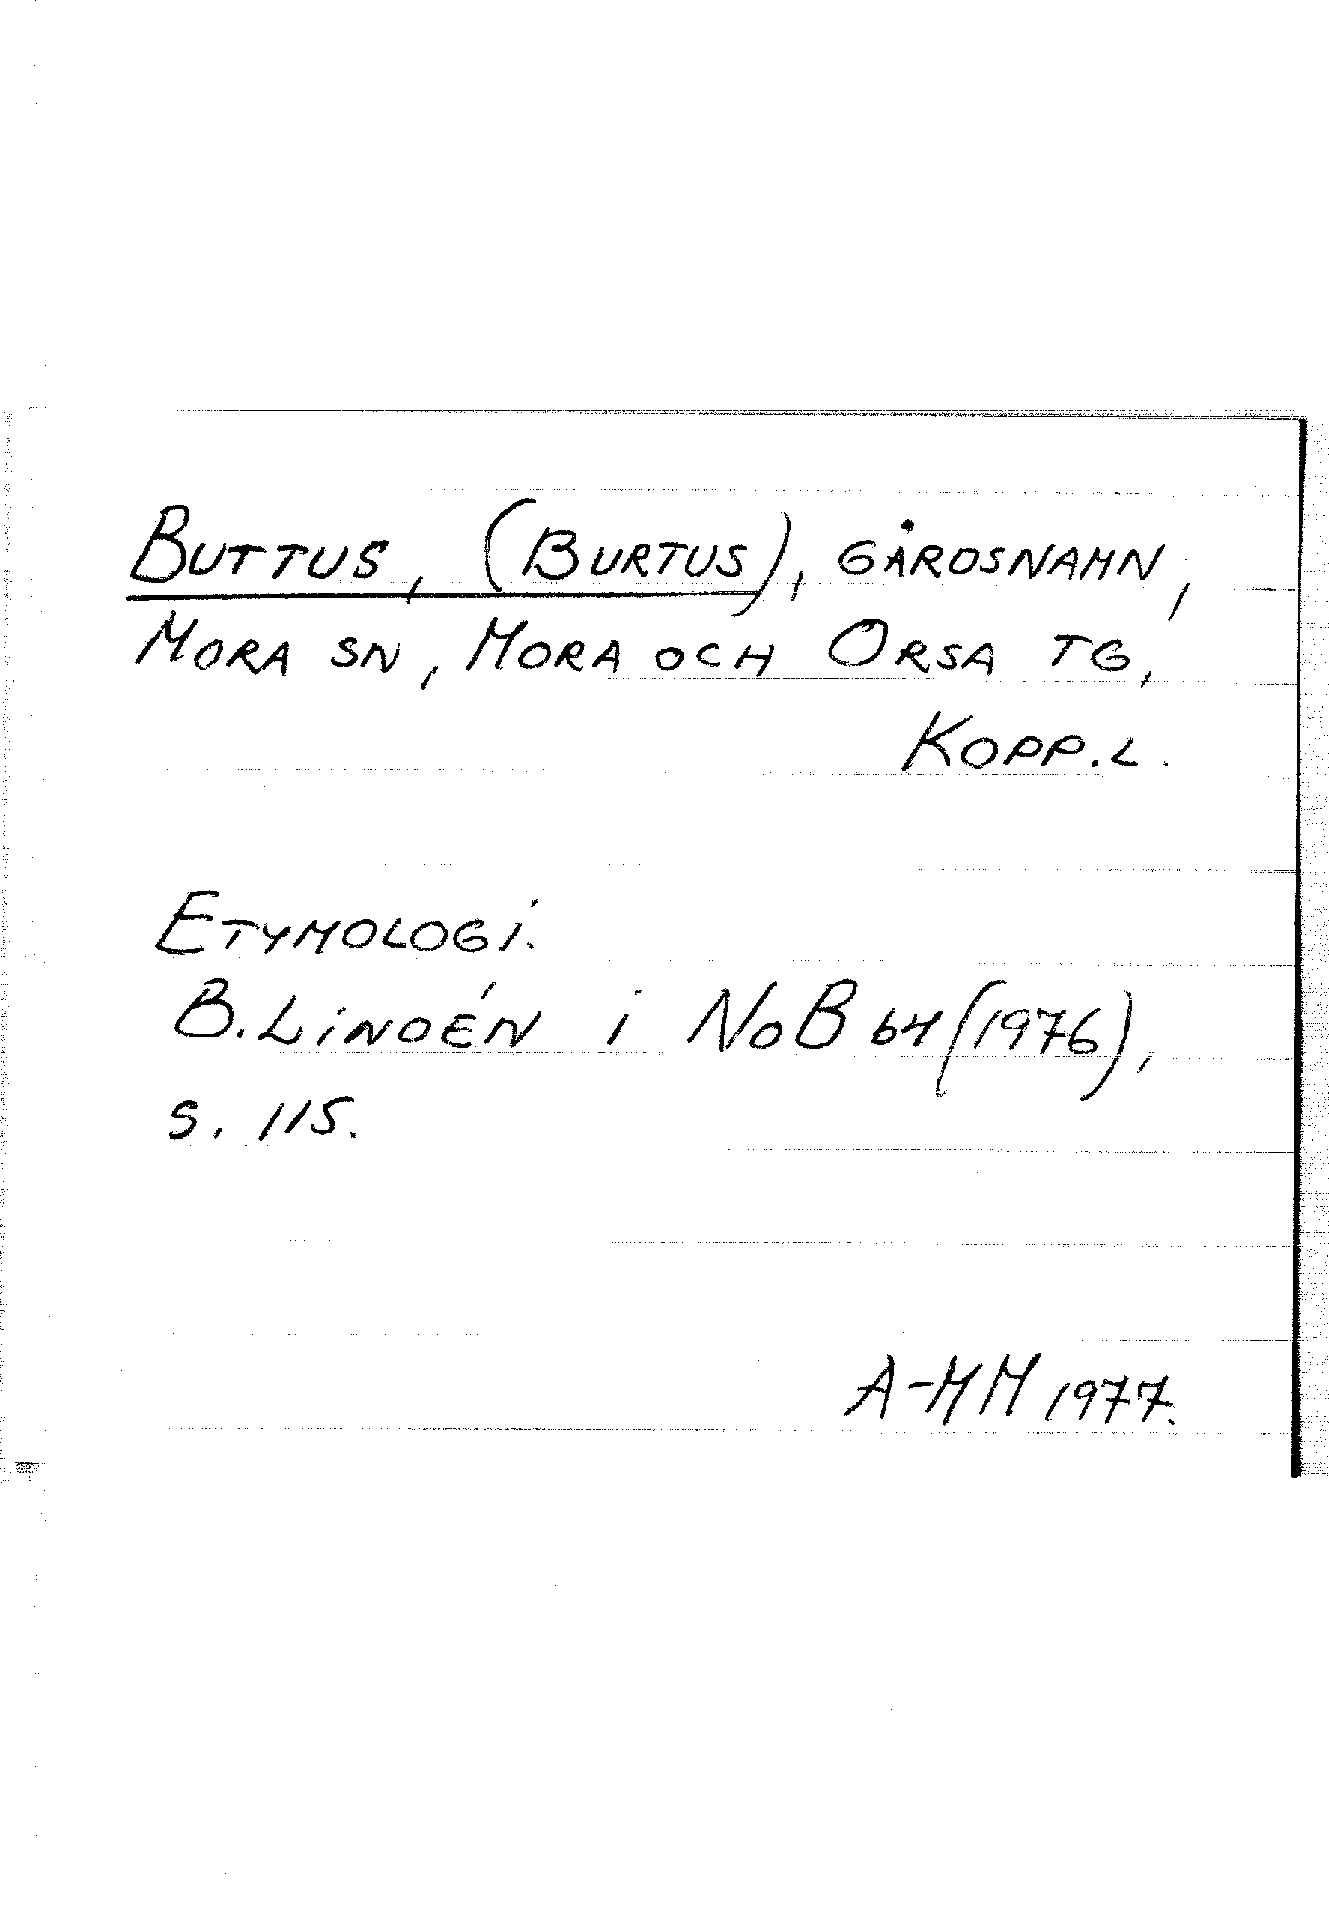 BUTTUS, (BURTUS), GÅRDSNAMN,
MORA SN, MORA OCH ORSA TG,
KOPP.L.
ETYMOLOGI.
B. LINDÉN i NoB 64 (1976),
S. 115.
A-MM 1977.